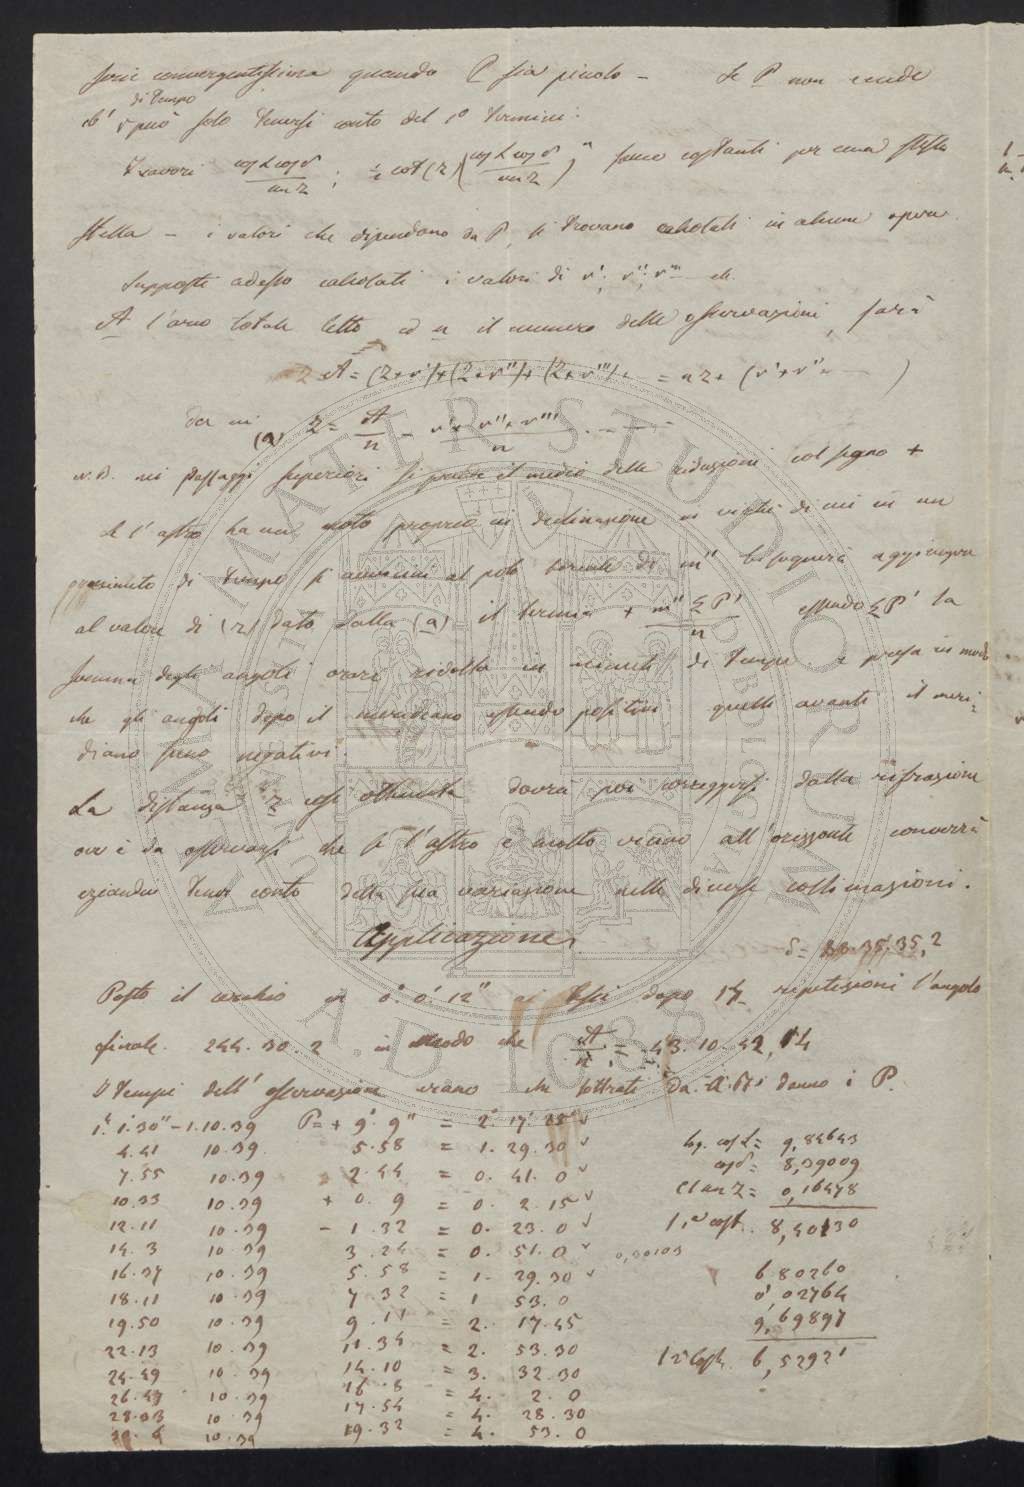 serie convergentissima quando P sia picolo – Se P non eccede
di tempo
16' si può solo tenersi conto del 1º termine.
I valori cos L cos δ / sen z ; ½ cot (z) (cos L cos δ / sen z)² sono costanti per una stessa
stella – i valori che dipendono da P, si trovano calcolati in alcune opere.
Supposti adesso calcolati i valori di r', r'', r''' – etc.
A l'arco totale letto ed n il numero delle osservazioni, sarà
A = (z+r')+(z+r'')+(z+r''')+ = nz + (r'+r''+ — )
da cui (a) z = A/n – r'+r''+r'''/n . – – –
N.B. nei passaggi superiori si prende il medio delle riduzioni col segno +
Se l'astro ha un moto proprio in declinazione in virtù di cui in un
minuto di tempo si avvicini al polo boreale di m'' bisognerà aggiungere
al valore di (z) dato dalla (a) il termine + m'' ΣP'/n essendo ΣP' la
somma degli angoli orari ridotta in minuti di tempo e presa in modo
che gli angoli dopo il meridiano essendo positivi quelli avanti il meri-
diano siano negativi.
La distanza z così ottenuta dovrà poi correggersi dalla rifrazione
ove è da osservarsi che se l'astro è molto vicino all'orizzonte converrà
eziandio tener conto della sua variazione nelle diverse collimazioni.
Applicazione.
δ = 35,2
Posto il cerchio in 0º. 0'. 12'' si lesse dopo 14 ripetizioni l'angolo
finale. 244. 30. 2 in modo che A/n = 43. 10. 42, 14
I tempi dell'osservazione erano che sottratti da danno i P.
1.h 1.'30'' – 1.10.39 P = + 9'. 9'' = 2'. 17'. 25''
4.41 10.39 5.58 = 1. 29.30
7.55 10.39 2.44 = 0. 41. 0
10.33 10.39 + 0. 9 = 0. 2. 15
12.11 10.39 – 1.32 = 0. 23. 0
14. 3 10.39 3.24 = 0. 51. 0
16.37 10.39 5.58 = 1. 29.30
18.11 10.39 7.32 = 1 53.0
19.50 10.39 9.11 = 2. 17.45
22.13 10.39 11.34 = 2. 53.30
24.49 10.39 14.10 = 3. 32.30
26.47 10.39 16.8 = 4. 2. 0
28.33 10.39 17.54 = 4. 28.30
10.39 19.32 = 4. 53.0
log. cos L = 9,84643
cos δ = 8,39009
Ct sen z = 0,16478
1º cost. 8,40130
0,30103
6.80260
0,02764
9,69897
2º cost. 6,52921
ALMA MATER STUDIORUM
A.D. 1088